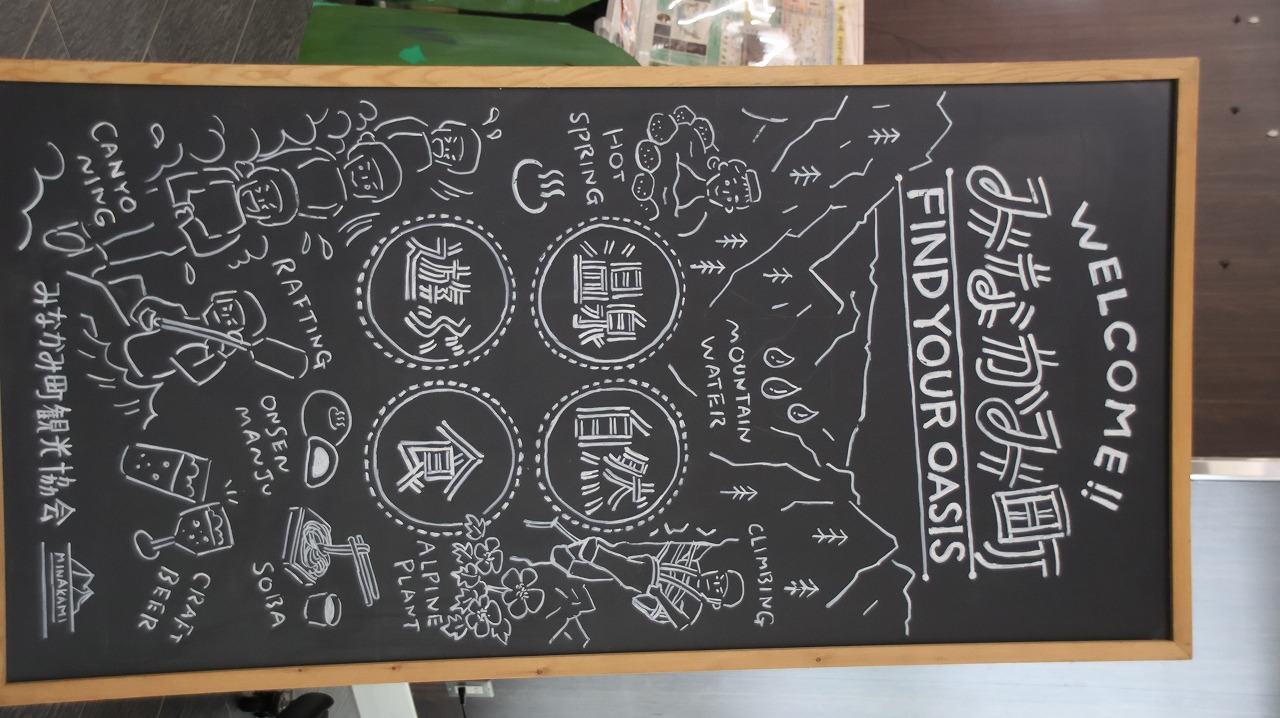 WELCOME!!
みなかみ町
FIND YOUR OASIS
MOUNTAIN
WATER
CLIMBING
HOT
SPRING
温泉
自然
遊ぶ
食
ALPINE
PLANT
RAFTING
ONSEN
MANJU
SOBA
CANYO
NING
CRAFT
BEER
みなかみ町観光協会
MINAKAMI